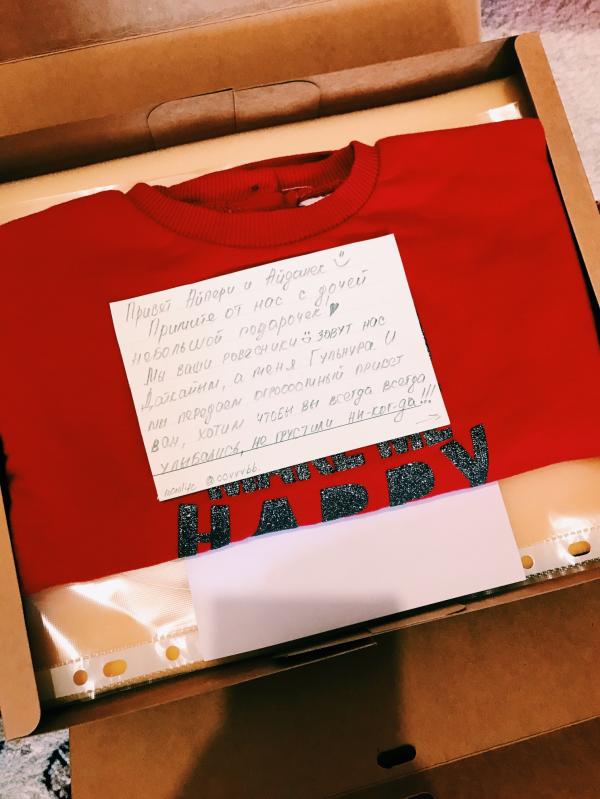 Привет Айпери и Айданек
Примите от нас с дочей
небольшой подарочек!
Мы ваши ровесники зовут нас
Дайкайым, а меня Гульнура. И
мы передаем огроооомный привет
вам, хотим чтобы вы всегда всегда
улыбались, не грустили ни-ког-да!!!
@covvvbb.
MAKE ME
HAPPY